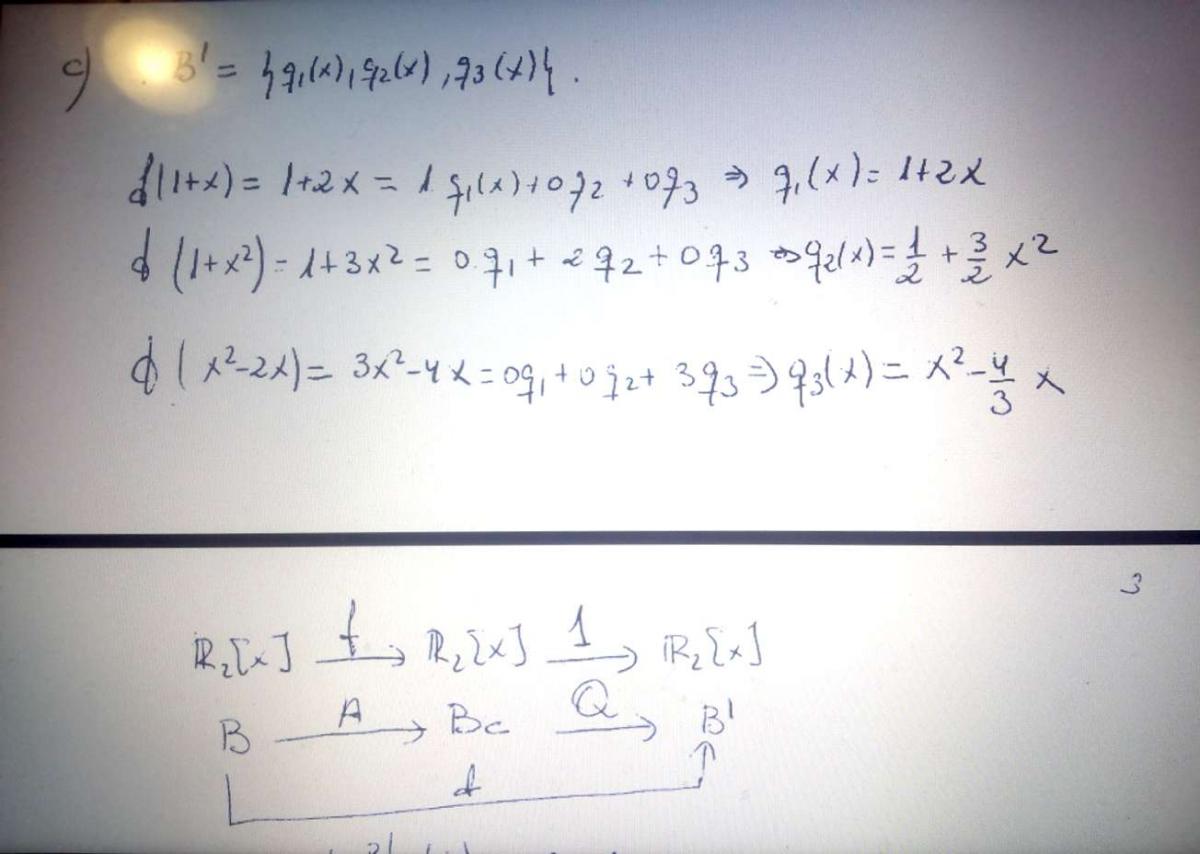 c) B' = {q₁(x), q₂(x), q₃(x)}.
f(1+x) = 1+2x = 1 q₁(x) + 0q₂ + 0q₃ ⇒ q₁(x) = 1+2x
f(1+x²) = 1+3x² = 0.q₁ + 2q₂ + 0q₃ ⇒ q₂(x) = 1/2 + 3/2 x²
f(x²-2x) = 3x²-4x = 0q₁ + 0q₂ + 3q₃ ⇒ q₃(x) = x² - 4/3 x
3
f 1
R₂[x] → R₂[x] → R₂[x]
A Q
B → Bc → B'
f